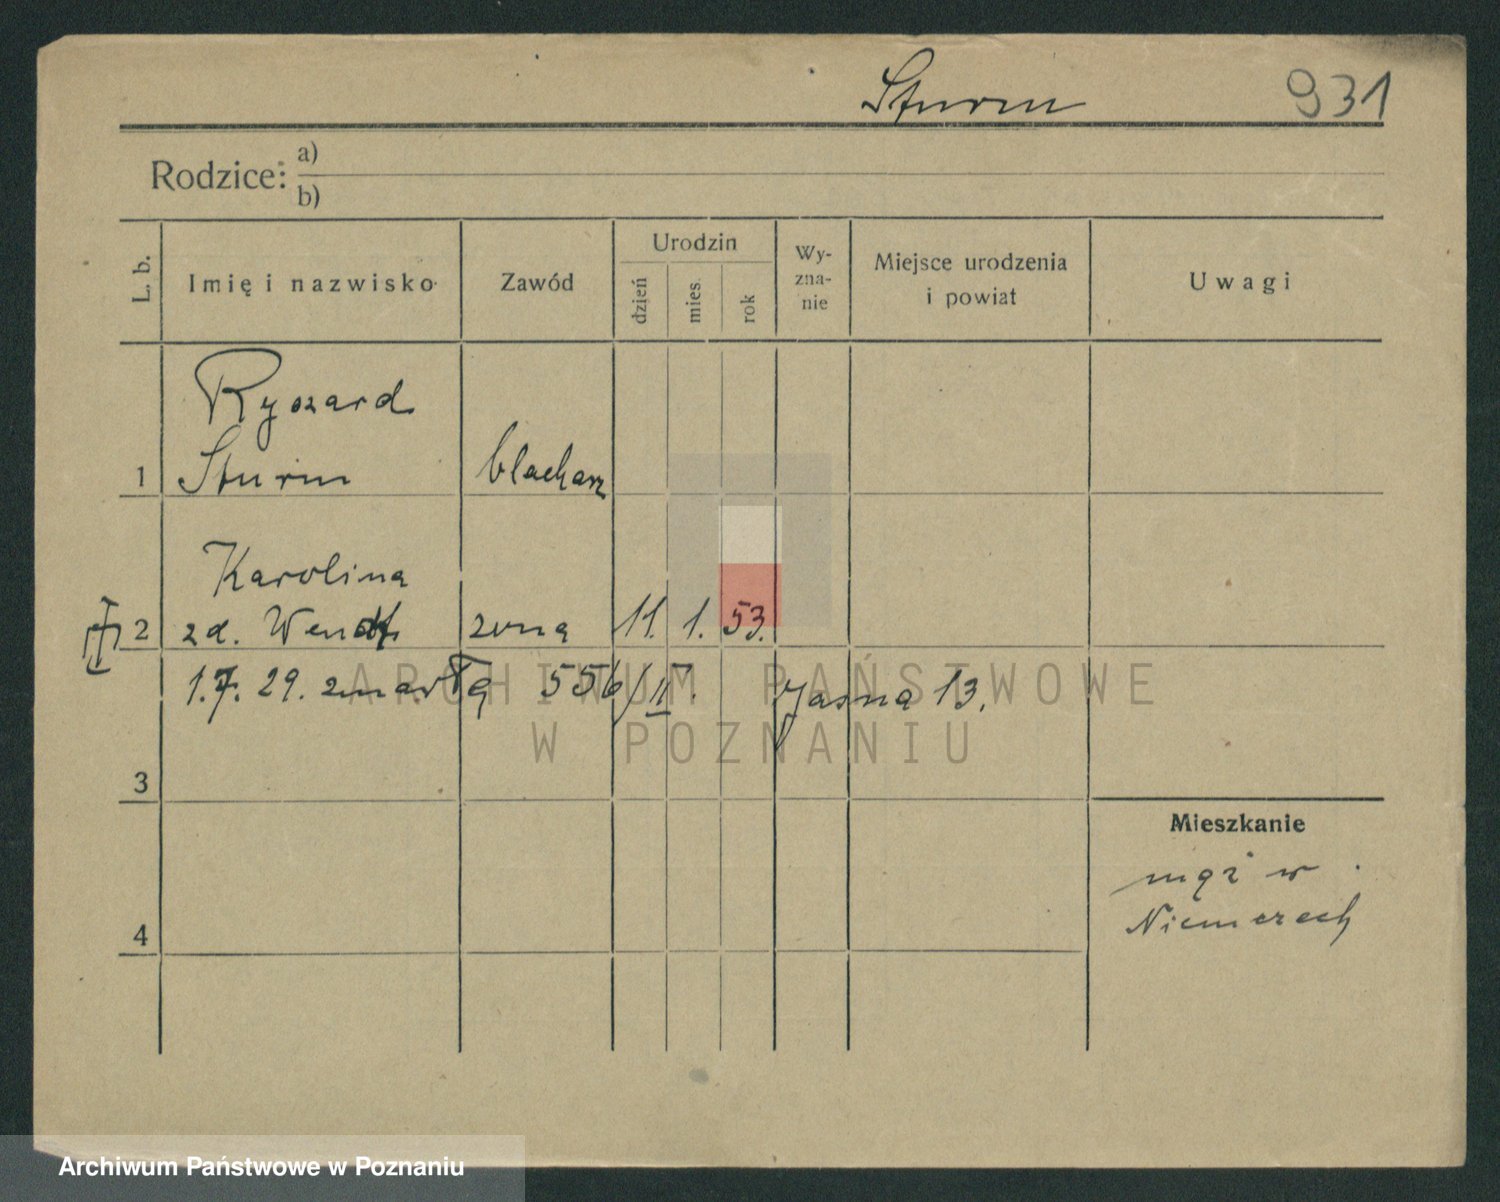 Sturm 931
Rodzice: a)
b)
L. b. Imię i nazwisko Zawód Urodzin dzień mies. rok Wy-zna-nie Miejsce urodzenia i powiat Uwagi
Ryszard
1 Sturm blacharz
Karolina
2 zd. Wendt żona 11. 1. 53.
1.7. 29. zmarła 556/II. Jasna 13.
ARCHIWUM PAŃSTWOWE
W POZNANIU
3
Mieszkanie
mąż w
Niemczech
4
Archiwum Państwowe w Poznaniu